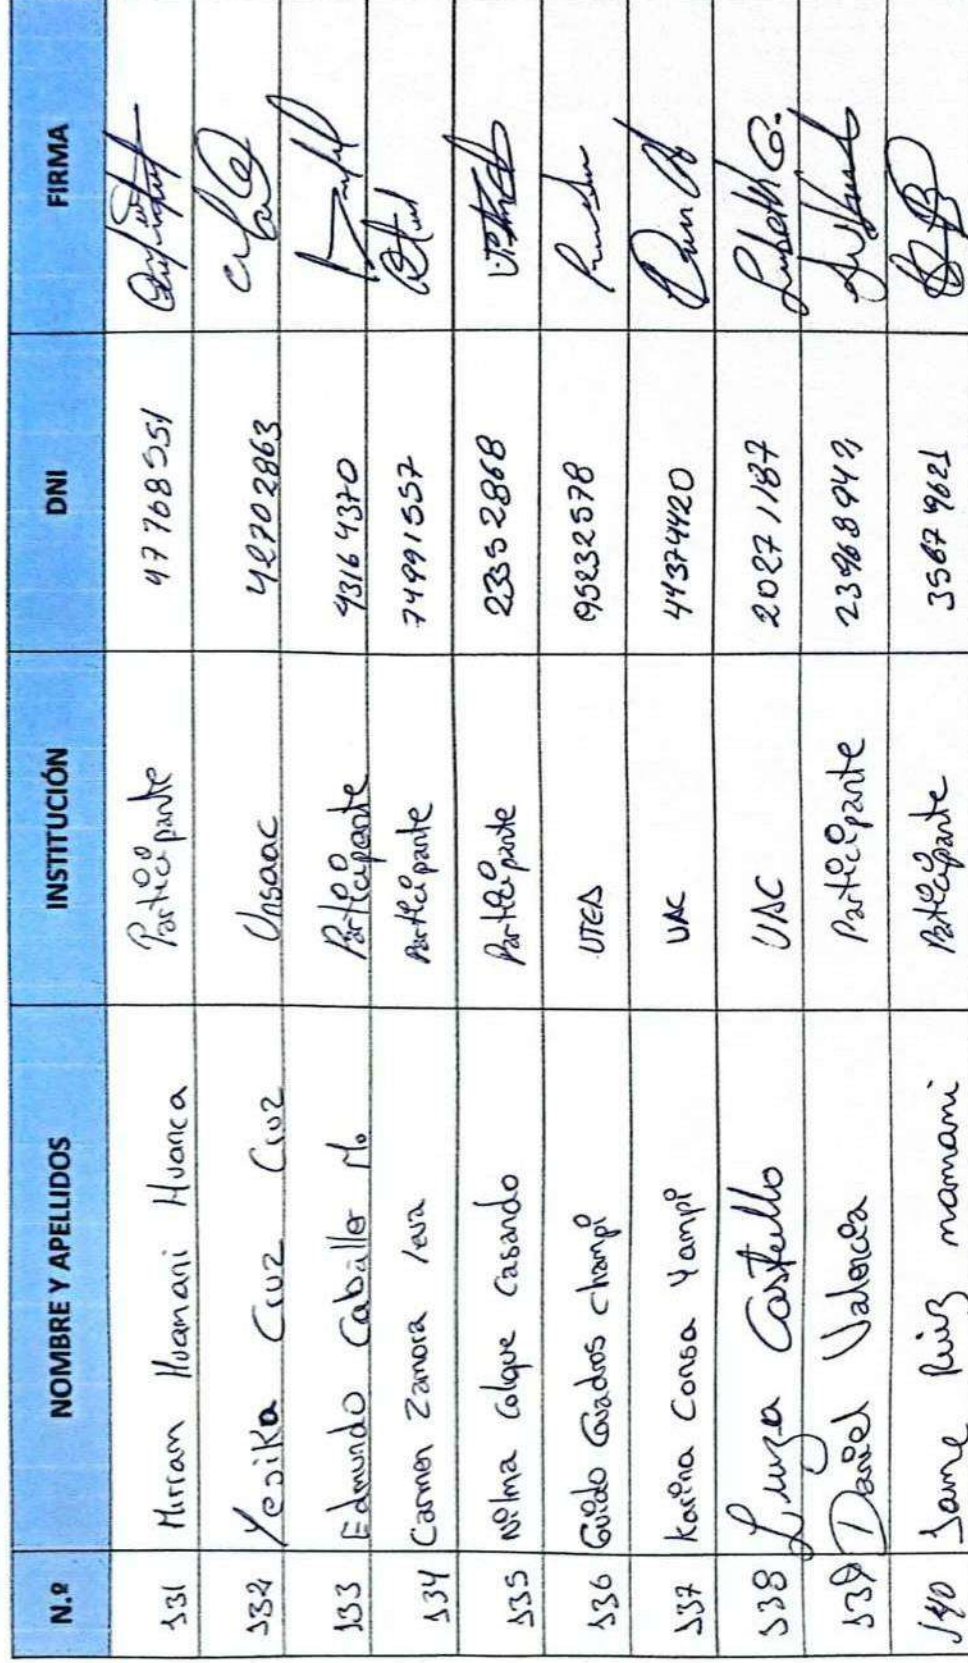 N.º NOMBRE Y APELLIDOS INSTITUCIÓN DNI FIRMA
131 Mirian Huamani Huanca Participante 47768551
132 Yesika Cruz Cruz Unsaac 42702863
133 Edmundo Caballer M. Participante 43164370
134 Carmen Zamora leva Participante 74991557
135 Nilma Colque Casando Participante 23352868
136 Guido Cuadros champi UTEA 95232578
137 Karina Consa Yampi UAC 44374420
138 Luuza Castello UAC 20271187
139 Daniel Valencia Participante
140 Jame Ruiz mamani Participante 35679621